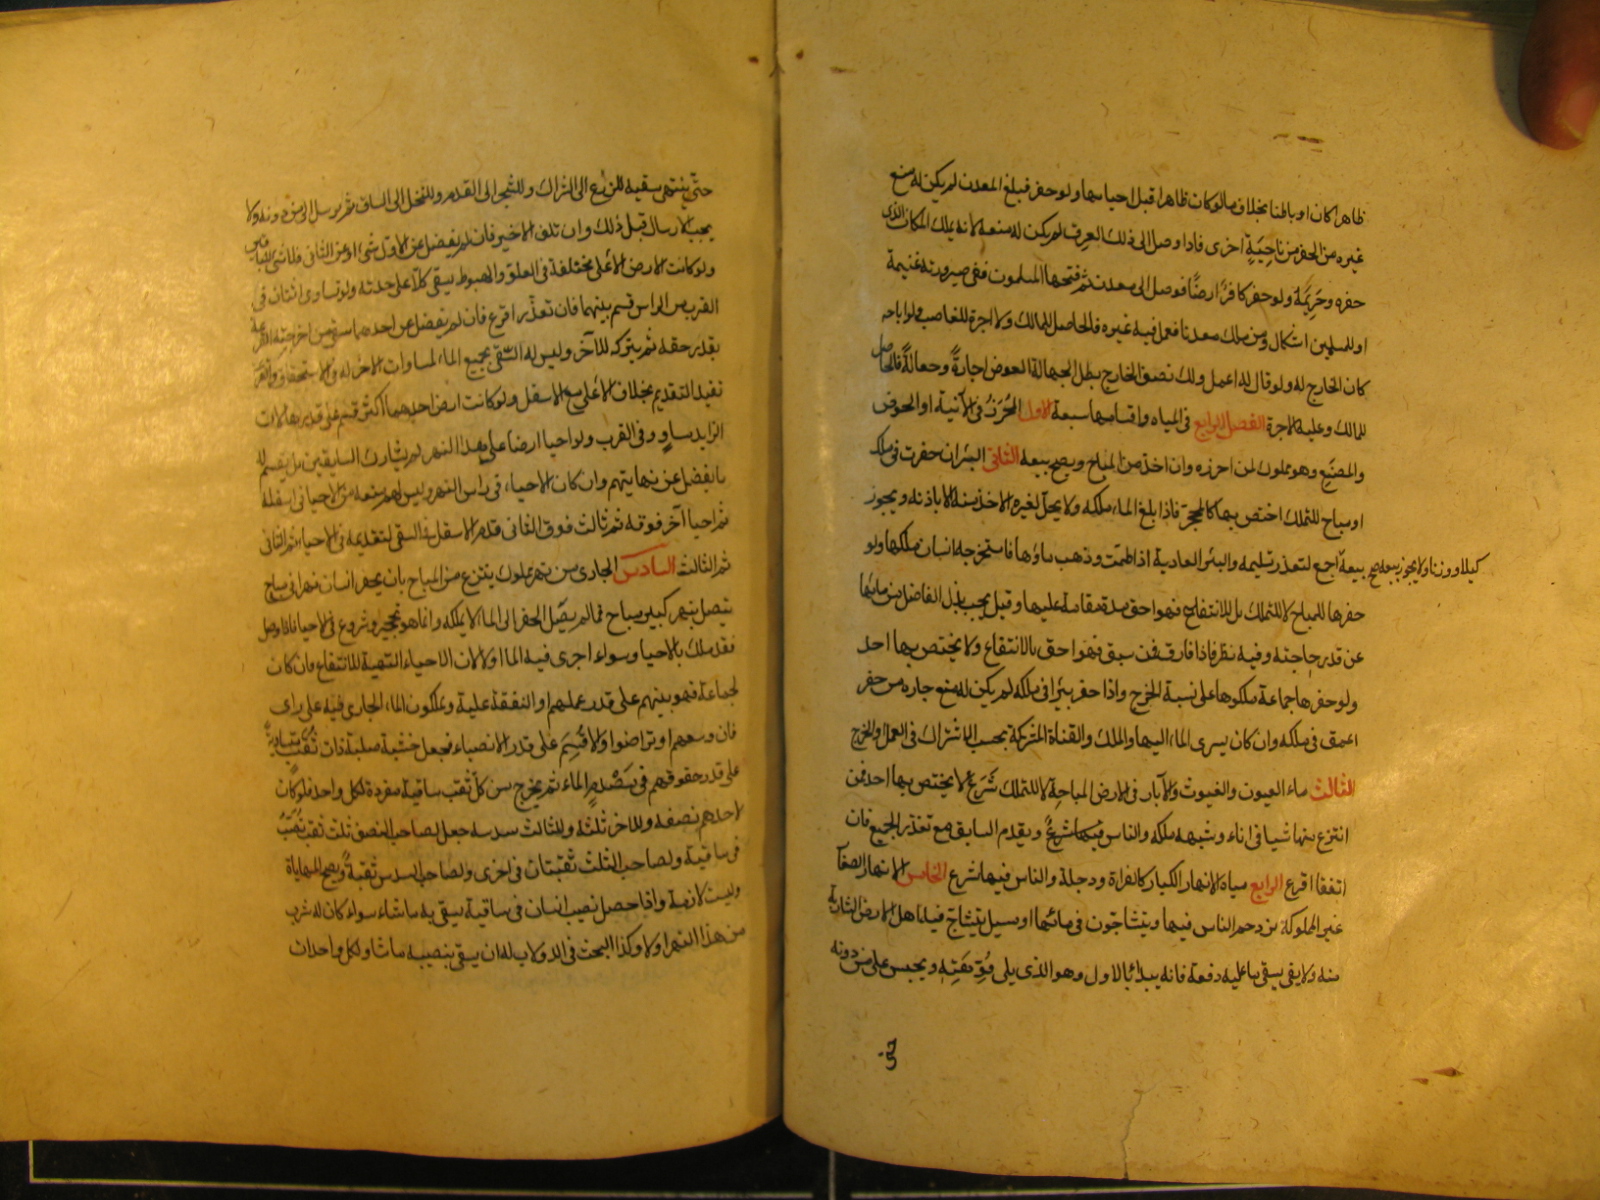 ظاهرا كان او باطنا بخلاف ما لو كان ظاهرا قبل احيائها ولو حفر فبلغ المعدن لم يكن له منع
غيره من الحفر من ناحية اخرى فاذا وصل الى ذلك العرق لم يكن له منعه لانه يملك المكان الذى
حفره وحريمه ولو حفر كافر ارضا فوصل الى معدن ثم فتحها المسلمون ففى صيرورته غنيمة
او للمسلمين اشكال ومن ملك معدنا فعمل فيه غيره فالحاصل للمالك ولا اجرة للغاصب ولو اباحه
كان الخارج له ولو قال له اعمل ولك نصف الخارج بطل لجهالة العوض اجارةً وجعالةً فالحاصل
للمالك وعليه الاجرة الفصل الرابع فى المياه واقسامها سبعة الاول المحرز فى الآنية او الحوض
والمصنع وهو مملوك لمن احرزه وان اخذ من المباح ويصح بيعه الثانى البئر ان حفرت فى ملك
او مباح للتملك اختص بها كالمحجر فاذا بلغ الماء ملكه ولا يحل لغيره الاخذ منه الا باذنه ويجوز بيعه
كيلا ووزنا ولا يجوز بيعه صح
بيعه اجمع لتعذر تسليمه والبئر العادية اذا طمت وذهب ماؤها فاستخرجه انسان ملكها ولو
حفرها للمباح لا للتملك بل للانتفاع فهو احق مدة مقامه عليها وقيل يجب بذل الفاضل من مائها
عن قدر حاجته وفيه نظر فاذا فارق فمن سبق فهو احق بالانتفاع ولا يختص بها احد
ولو حفرها جماعة ملكوها على نسبة الخرج واذا حفر بئرا فى ملكه لم يكن له منع جاره من حفر
اعمق فى ملكه وان كان يسرى الماء اليها والملك والقناة المشتركة بحسب الاشتراك فى العمل او الخرج
الثالث ماء العيون والغيوث والآبار فى الارض المباحة لا للتملك شرع لا يختص بها احد فمن
انتزع منها شيا فى اناء وشبهه ملكه والناس فيها شرع ويقدم السابق مع تعذر الجميع فان
اتفقا اقرع الرابع مياه الانهار الكبار كالفرات ودجلة والناس فيها شرع الخامس الانهار الصغار
غير المملوكة يزدحم الناس فيها ويتشاحون فى مائها او سيل يتشاح فيه اهل الارض الشاربة
منه ولا يفى بسقى ما عليه دفعة فانه يبدأ بالاول وهو الذى يلى فوهته ويحبس على من دونه
حتى ينتهى سقيه للزرع الى الشراك وللشجر الى القدم وللنخل الى الساق ثم يرسل الى من دونه ولا
يجب الارسال قبل ذلك وان تلف الاخير فان لم يفضل عن الاول شئ او عن الثانى فلا شئ للباقى
ولو كانت الارض الاعلى مختلفة فى العلو والهبوط يسقى كلا على حدته ولو تساوى اثنان فى
القرب من الراس قسم بينهما فان تعذر اقرع فان لم يفضل عن احدهما سقى من اخرجته القرعة
بقدر حقه ثم يتركه للآخر وليس له السقى بجميع الماء لمساوات الاخر له فى الاستحقاق والقرعة
تفيد التقديم بخلاف الاعلى مع الاسفل ولو كانت ارض احدهما اكثر قسم على قدرها لان
الزايد مساو فى القرب ولو احيا ارضا على هذا النهر لم يشارك السابقين بل يقسم له
ما يفضل عن نهايتهم وان كان الاحياء فى راس النهر وليس لهم منعه من الاحيا فى اسفله
ثم احيا آخر فوقه ثم ثالث فوق الثانى قدم الاسفل فى السقى لتقدمه فى الاحياء ثم الثانى
ثم الثالث السادس الجارى من نهر مملوك ينتزع من المباح بان يحفر انسان نهرا فى مباح
يتصل بنهر كبير مباح فما لم يصل الحفر الى الماء لا يملكه وانما هو تحجير وشروع فى الاحيا فاذا وصل
فقد ملك بالاحيا وسواء اجرى فيه الماء او لا لان الاحياء التهية للانتفاع فان كان
لجماعة فهو بينهم على قدر عملهم او النفقة عليه ويملكون الماء الجارى فيه على راى
فان وسعهم او تراضوا والا قسم على قدر الانصباء فتجعل خشبة صلبة ذات ثقب متساوية
على قدر حقوقهم فى مصدم الماء ثم يخرج من كل ثقب ساقية مفردة لكل واحد فلو كان
لاحدهم نصفه وللاخر ثلثه وللثالث سدسه جعل لصاحب النصف ثلث ثقب تصب
فى ساقية ولصاحب الثلث ثقبتان فى اخرى ولصاحب السدس ثقبة ويصح المهاياة
وليست لازمة واذا حصل نصيب انسان فى ساقية سقى به ما شاء سواء كان له شرب
من هذا النهر او لا وكذا البحث فى الدولاب له ان يسقى بنصيبه ما شاء ولكل واحد ان